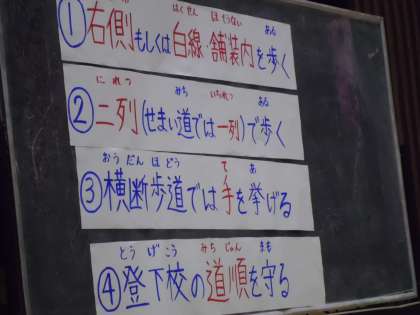 はくせん ほそうない ある
①右側もしくは白線・舗装内を歩く
にれつ みち いちれつ ある
②二列(せまい道では一列)で歩く
おうだんほどう て あ
③横断歩道では手を挙げる
とうげこう みちじゅん まも
④登下校の道順を守る